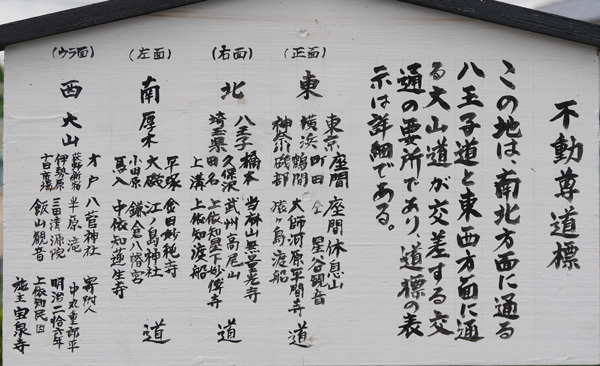 不動尊道標
この地は、南北方面に通る
八王子道と東西方面に通
る大山道が交差する交
通の要所であり、道標の表
示は詳細である。
(正面)
東
東京 座間 座間休息山
横浜 町田 仝 星谷観音
神奈川 鶴間 大師河原平間寺
磯部 猿ヶ島渡船
道
(右面)
北
八王子 橋本 当麻山無量光寺
埼玉県 久保沢 武州高尾山
田名 上依知星下妙傳寺
上溝 上依知渡船
道
(左面)
南 厚木
平塚 金田妙純寺
大磯 江ノ島神社
小田原 鎌倉八幡宮
馬入 中依知蓮生寺
道
(ウラ面)
西 大山
才戸 八菅神社 寄附人
荻野新宿 半原 滝 中丸重郎平
伊勢原 三田清源院 明治二拾六年
飯山観音 上依知民
施主宝泉寺